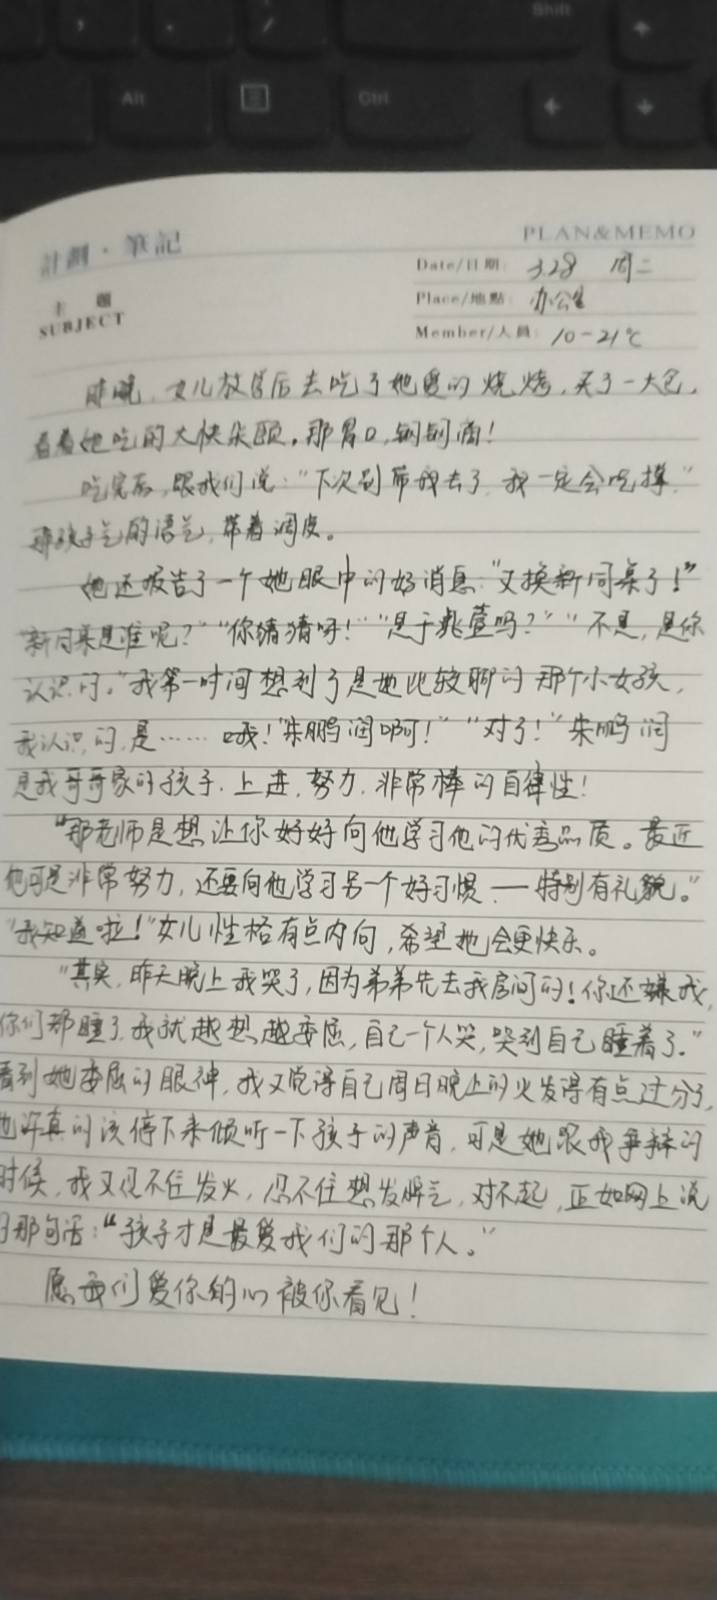 Shift
Alt
Ctrl
計劃·筆記
PLAN&MEMO
主題
SUBJECT
Date/日期: 3.28 周二
Place/地點: 办公室
Member/人員: 10-21℃
昨晚,女儿放学后去吃了她爱的烧烤,买了一大包,
看着她吃的大快朵颐。那胃口,钢钢滴!
吃完后,跟我们说:"下次别带我去了,我一定会吃撑。"
那孩子气的语气,带着调皮。
她还报告了一个她眼中的好消息:"又换新同桌了!"
"新同桌是谁呢?""你猜猜呀!""是于兆萱吗?""不是,是你
认识的。"我第一时间想到了是她比较聊的那个小女孩,
我认识的,是……哦!"朱鹏润啊!""对了!"朱鹏润
是我哥哥家的孩子,上进,努力,非常棒的自律性!
"那老师是想让你好好向他学习他的优秀品质。最近
他可是非常努力,还要向他学习另一个好习惯——特别有礼貌。"
"我知道啦!"女儿性格有点内向,希望她会更快乐。
"其实,昨天晚上我哭了,因为弟弟先去我房间的!你还嫌我,
你们都睡了,我就越想越委屈,自己一个人哭,哭到自己睡着了。"
看到她委屈的眼神,我又觉得自己周日晚上的火发得有点过分了,
也许真的该停下来倾听一下孩子的声音,可是她跟我争辩的
时候,我又忍不住发火,忍不住想发脾气,对不起,正如网上说
的那句话:"孩子才是最爱我们的那个人。"
愿我们爱你的心被你看见!